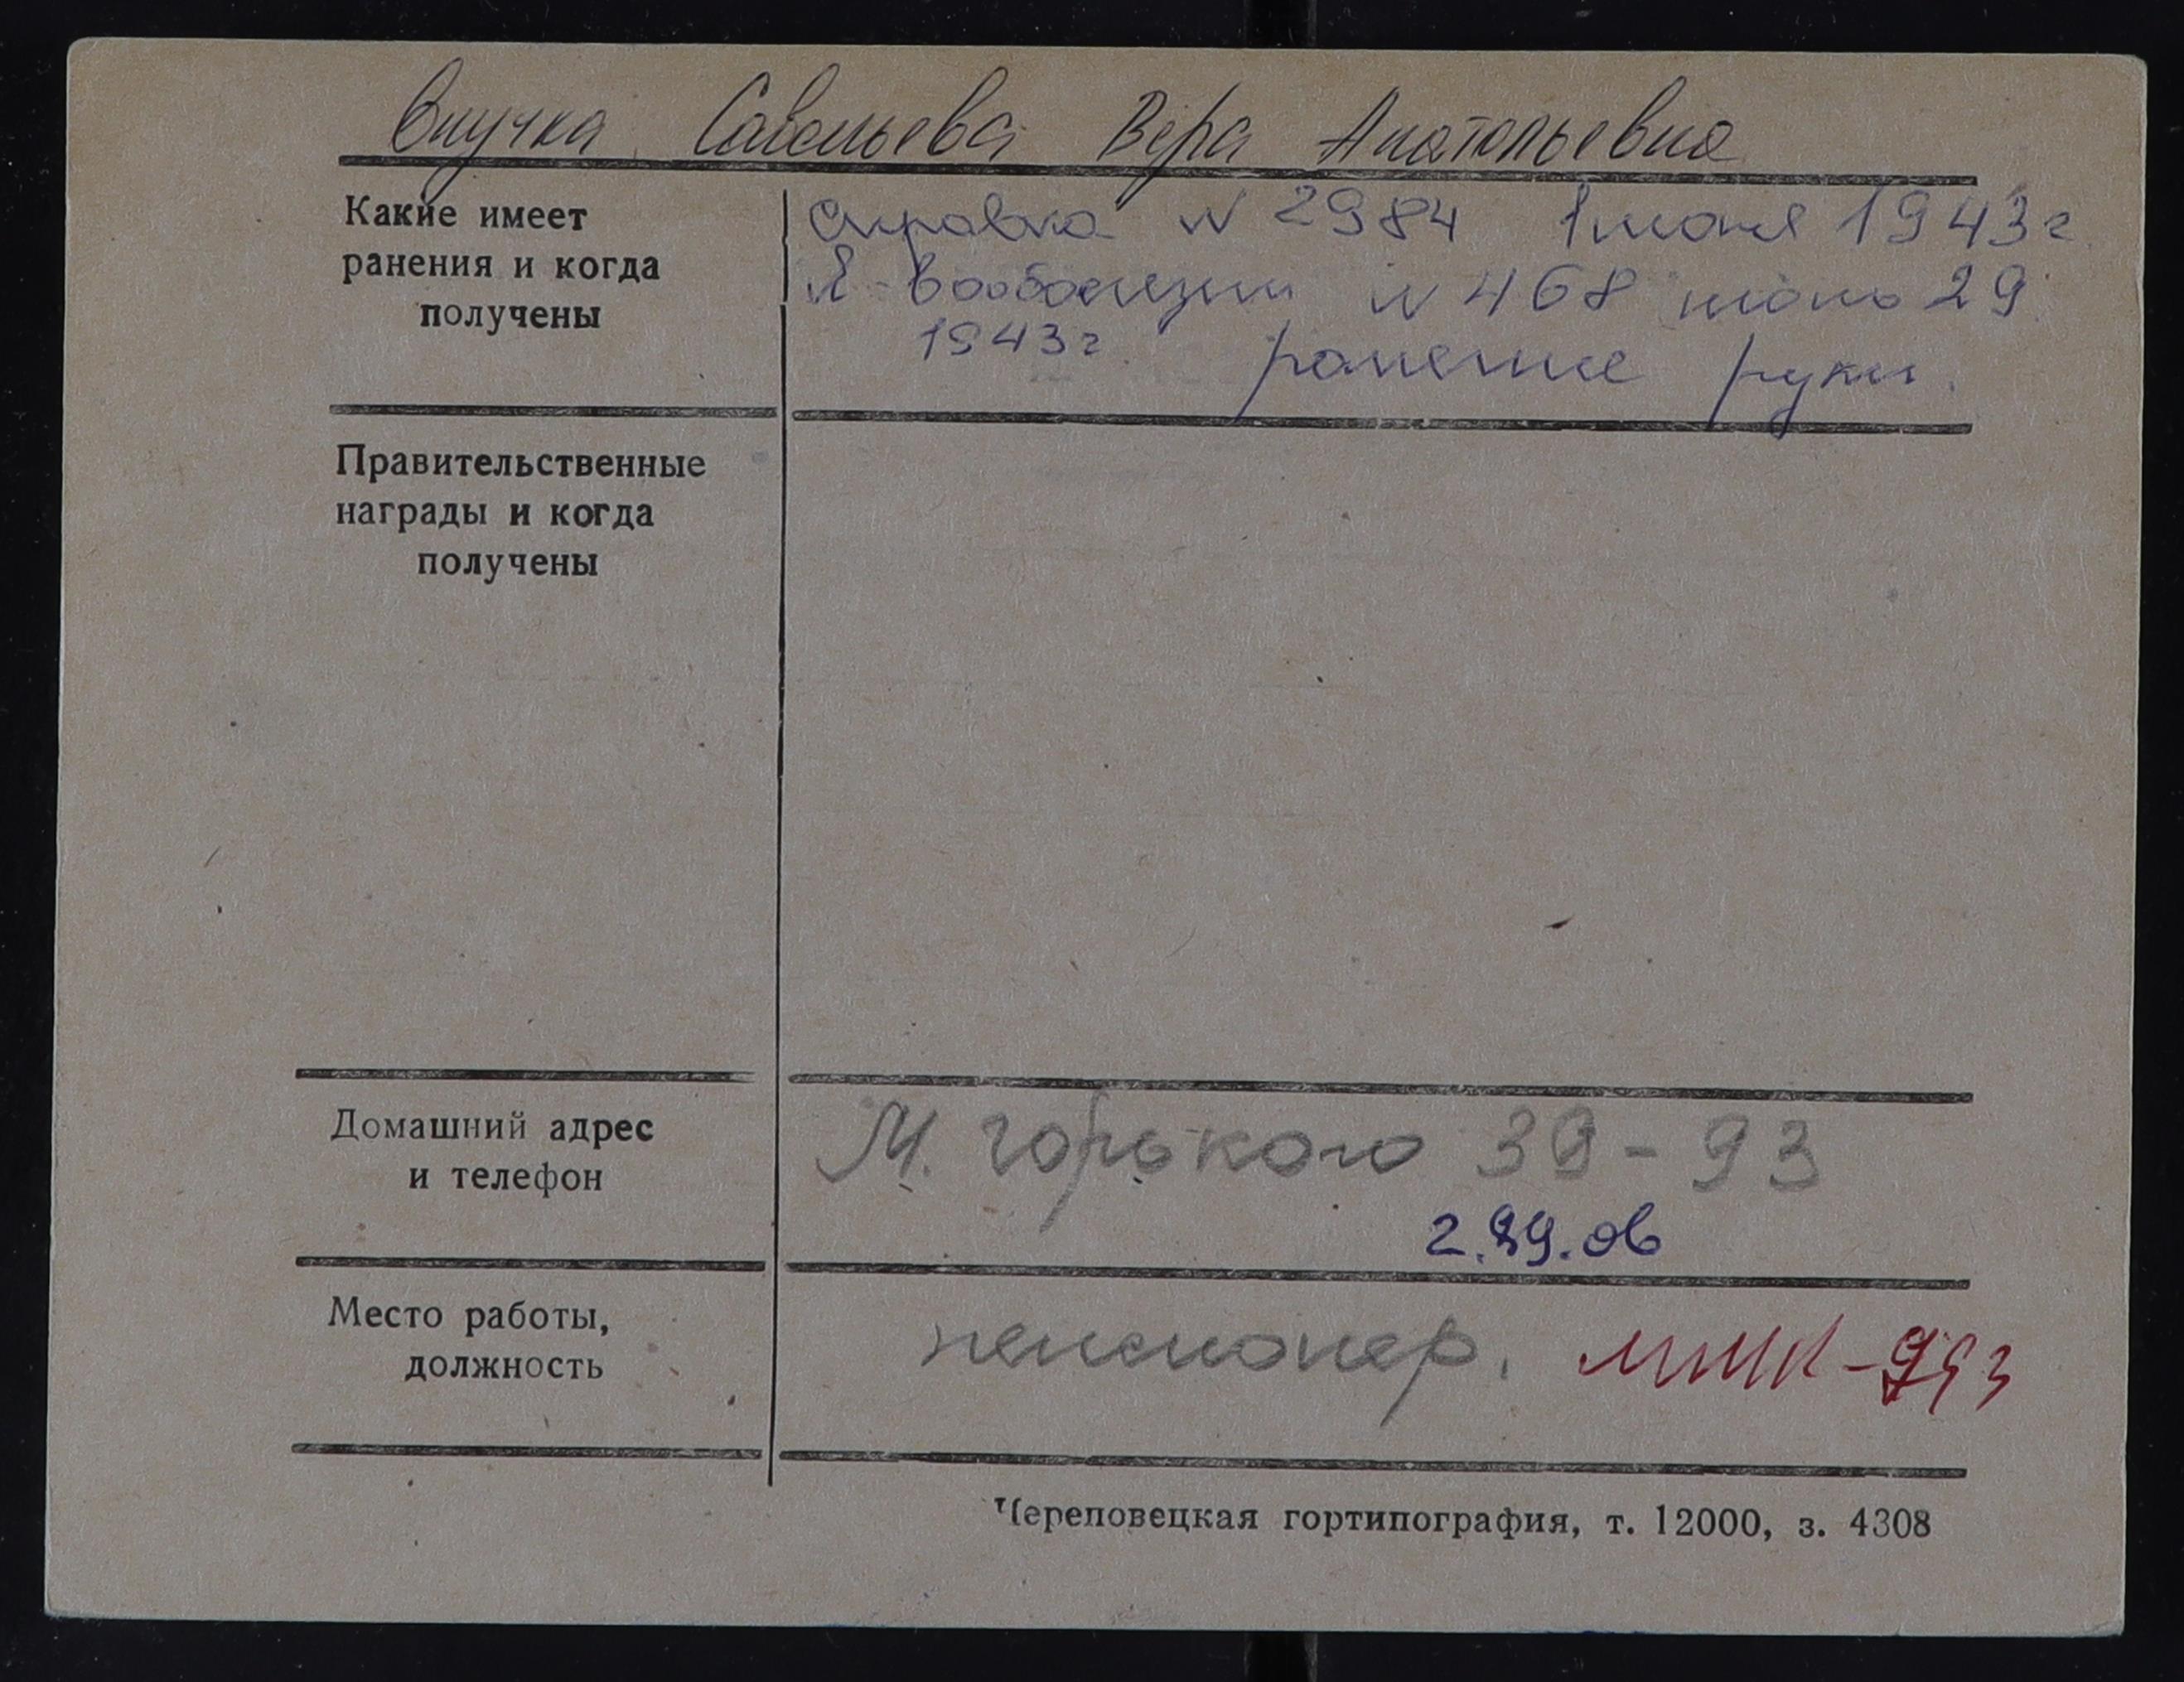 Внучка Савельева Вера Анатольевна
Какие имеет
ранения и когда
получены
Справка N 2984 1 июня 1943 г
N 468 июль 29
1943 г. ранение руки.
Правительственные
награды и когда
получены
Домашний адрес
и телефон
М. Горького 39-93
2.89.06
Место работы,
должность
пенсионер.
Череповецкая гортипография, т. 12000, з. 4308